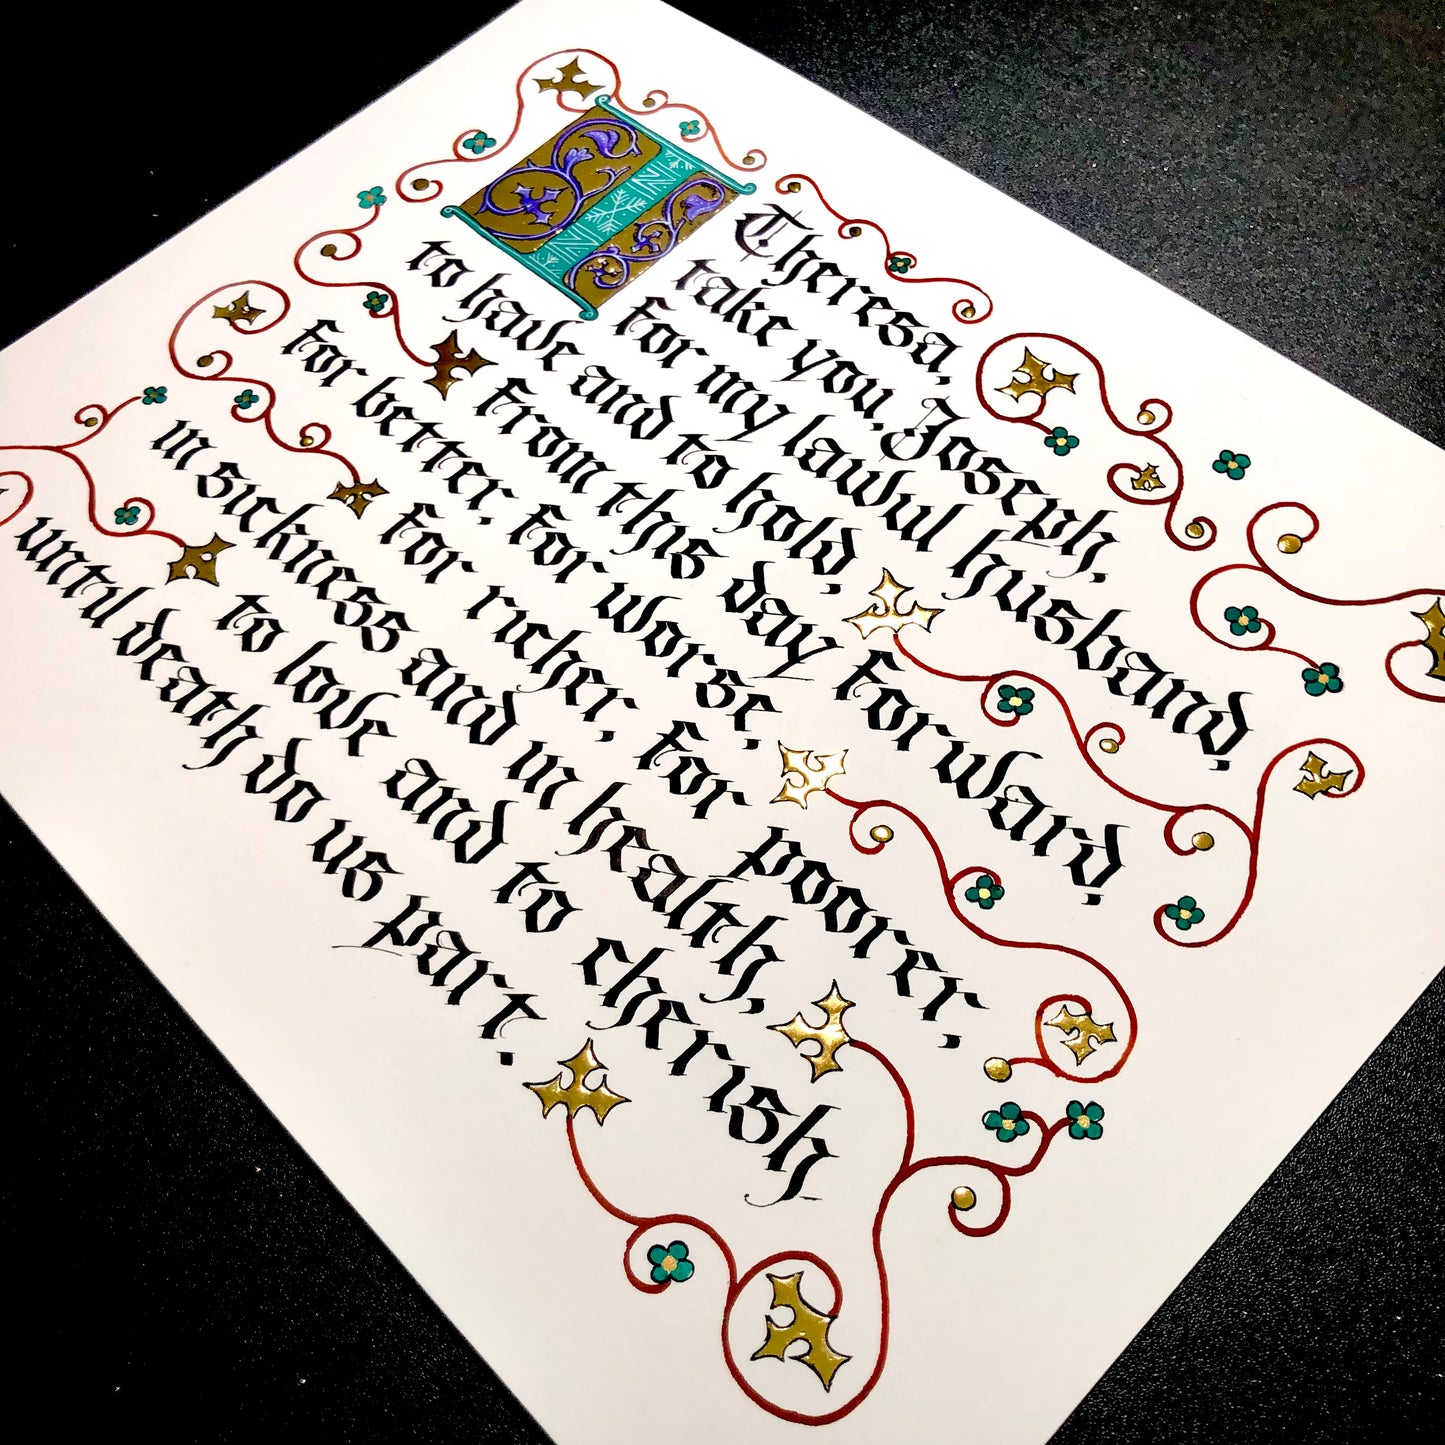 I Theresa,
take you, Joseph,
for my lawul husband,
to have and to hold,
from this day forward,
for better, for worse,
for richer, for poorer,
in sickness and in health,
to love and to cherish
until death do us part.